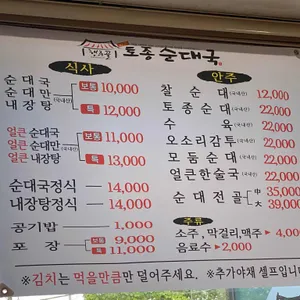 토종순대국
식사
순대국
순대만(국내산)
내장탕
보통 10,000
특 12,000
얼큰 순대국
얼큰 순대만(국내산)
얼큰 내장탕
보통 11,000
특 13,000
순대국정식 — 14,000
내장탕정식 — 14,000
공기밥 — 1,000
포장
보통 9,000
특 11,000
안주
찰순대(국내산) 12,000
토종순대(국내산) 22,000
수육(국내산) 22,000
오소리감투(국내산) 22,000
모듬순대(국내산) 22,000
얼큰한술국(국내산) 22,000
순대전골
中 35,000
大 39,000
주류
소주, 막걸리, 맥주 → 4,000
음료수 → 2,000
※김치는 먹을만큼만 덜어주세요. ※추가야채 셀프입니